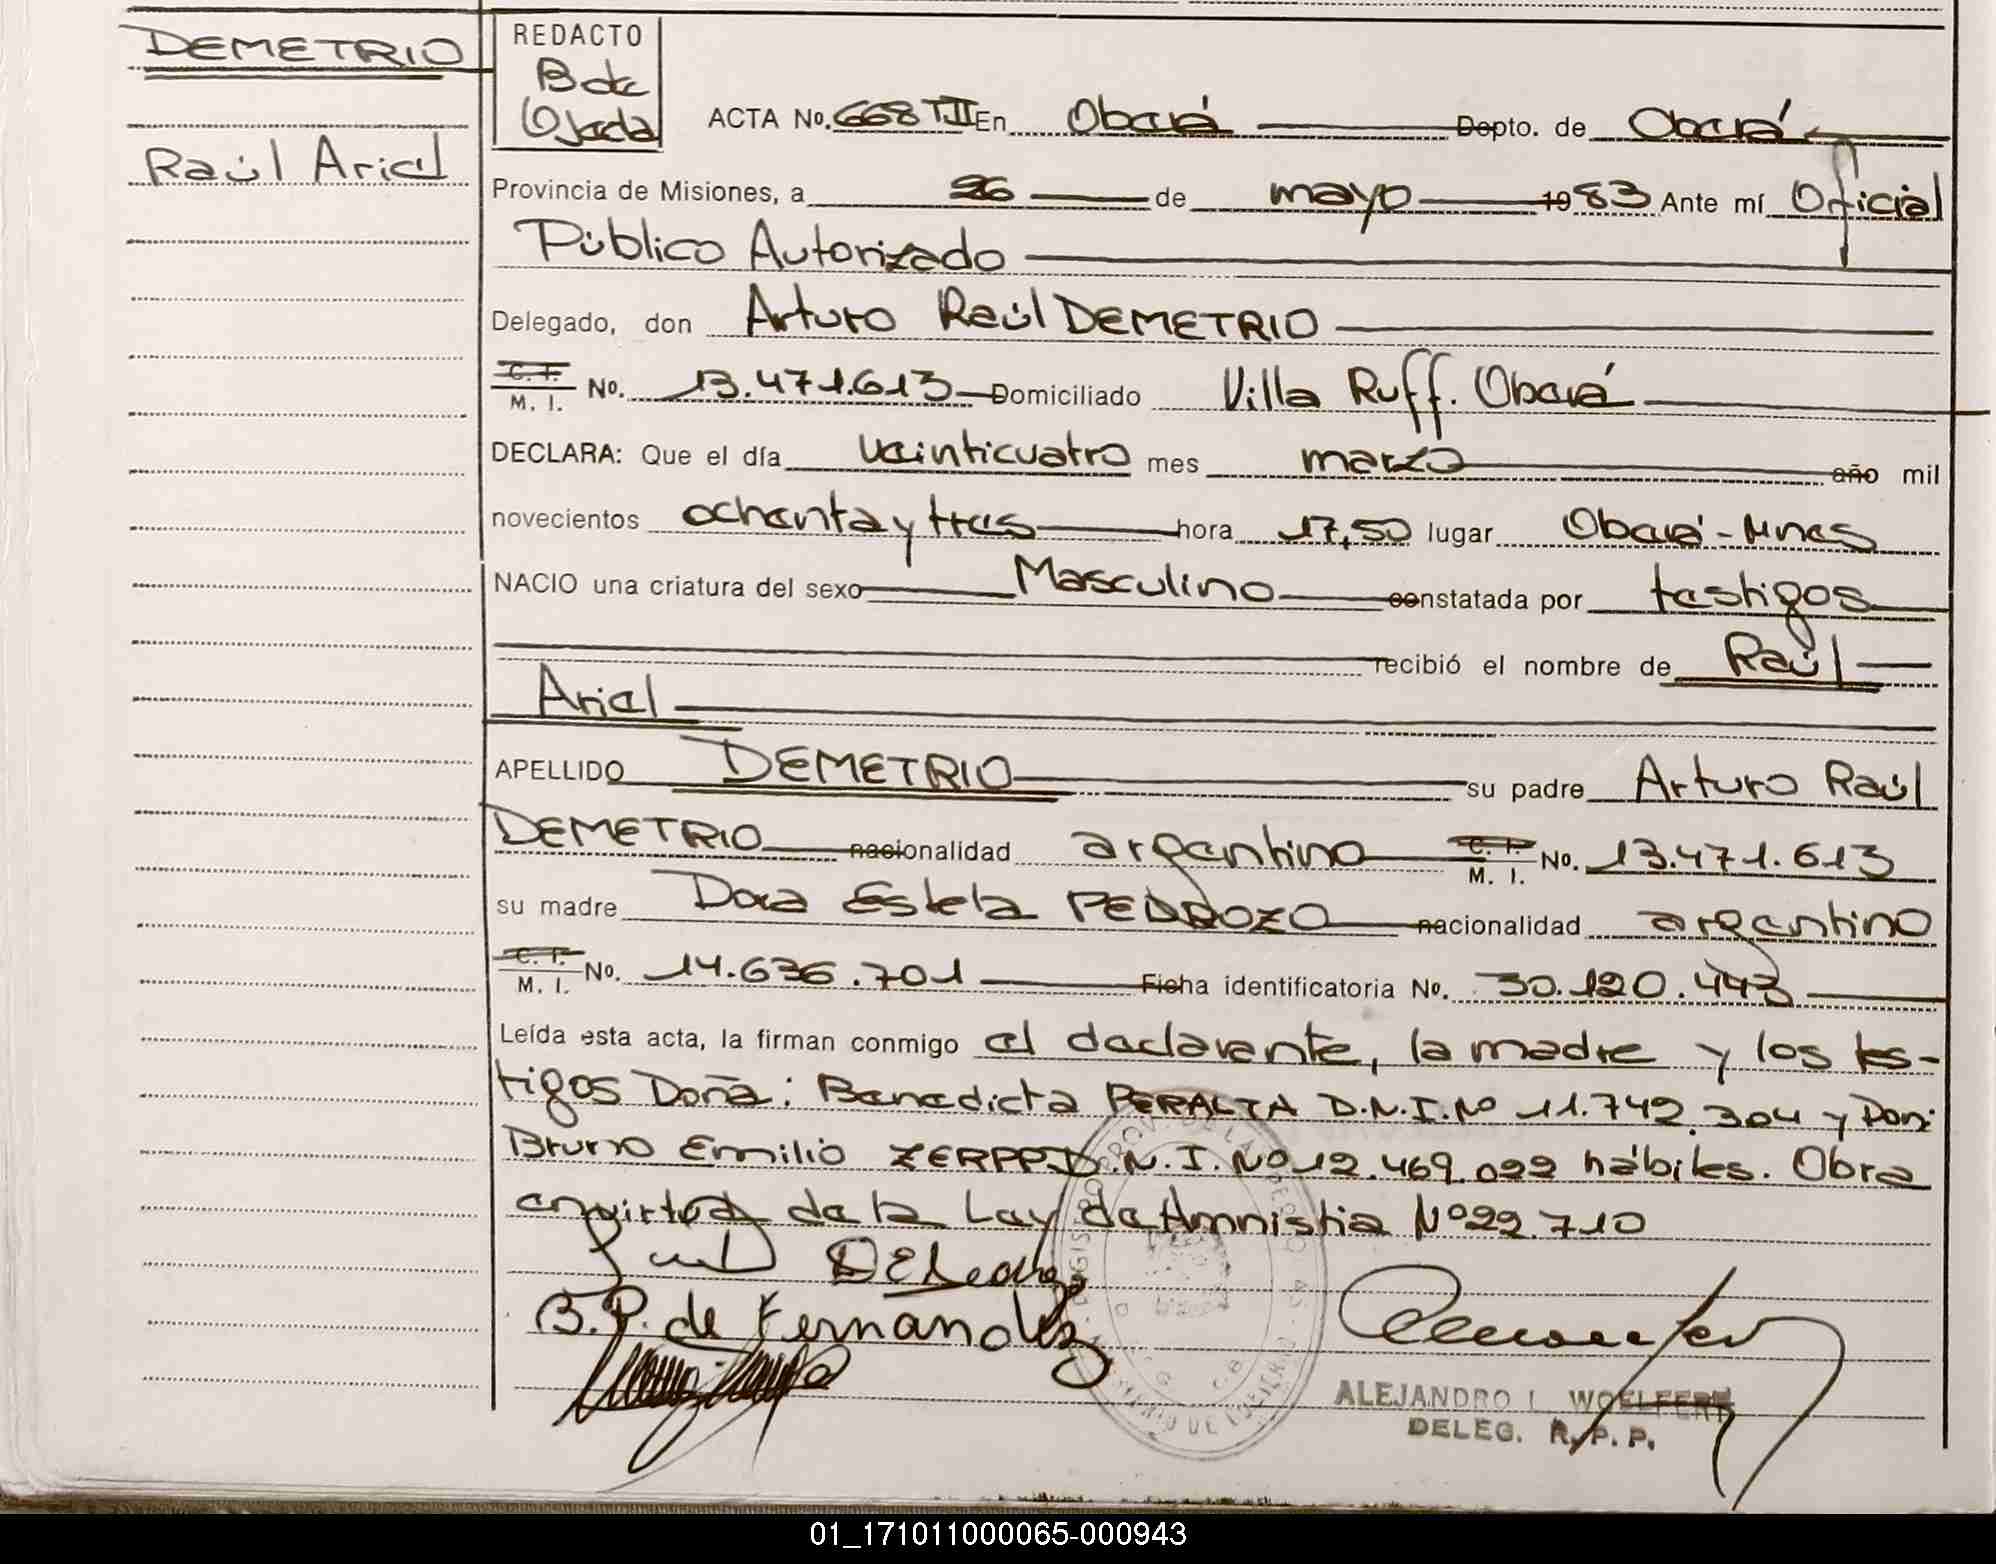 DEMETRIO
Raúl Ariel
REDACTO
Bde
Ojeda
ACTA No. 668 TII En Oberá Depto. de Oberá
Provincia de Misiones, a 26 de mayo 1983 Ante mí Oficial
Público Autorizado
Delegado, don Arturo Raúl DEMETRIO
C. I. M. I. No. 13.471.613 Domiciliado Villa Ruff. Oberá
DECLARA: Que el día veinticuatro mes marzo año mil
novecientos ochenta y tres hora 17,50 lugar Oberá-Mnes
NACIO una criatura del sexo Masculino constatada por testigos
recibió el nombre de Raúl
Ariel
APELLIDO DEMETRIO su padre Arturo Raúl
DEMETRIO nacionalidad argentino C. I. M. I. No. 13.471.613
su madre Dora Estela PEDROZO nacionalidad argentino
C. I. M. I. No. 14.636.701 Ficha identificatoria No. 30.120.443
Leída esta acta, la firman conmigo el declarante, la madre y los tes-
tigos Doña: Benedicta PERALTA D.N.I.Nº 11.742.304 y Don:
Bruno Emilio ZERPP D.N.I.Nº 12.469.022 hábiles. Obra
en virtud de la Ley de Amnistia Nº 22.710
B.P. de Fernandez
ALEJANDRO L. WOELFERT
DELEG. R.P.P.
01_171011000065-000943